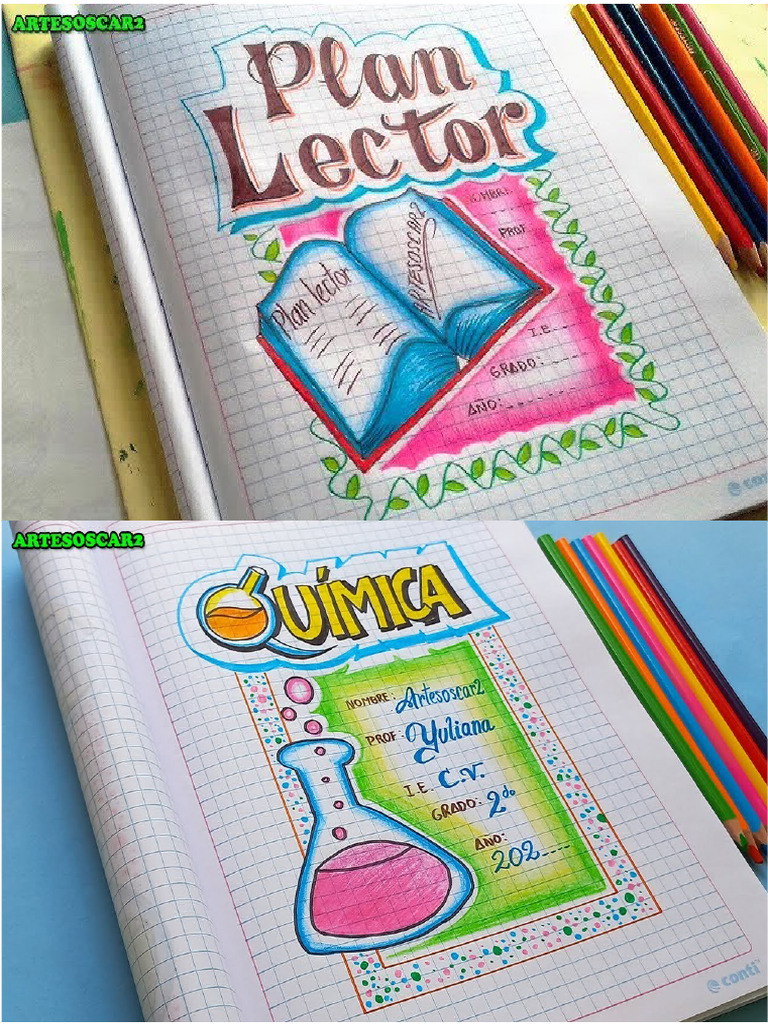 ARTESOSCAR2
Plan
Lector
NOMBRE:
PROF
Plan lector
ARTESOSCAR2
I.E. _ _ _
GRADO: _ _ _ _
AÑO: _ _ _ _ _ _ _
conti
ARTESOSCAR2
QUÍMICA
NOMBRE: Artesoscar2
PROF: Yuliana
I.E. C.V.
GRADO: 2do
AÑO:
202_ _ _ _
conti™